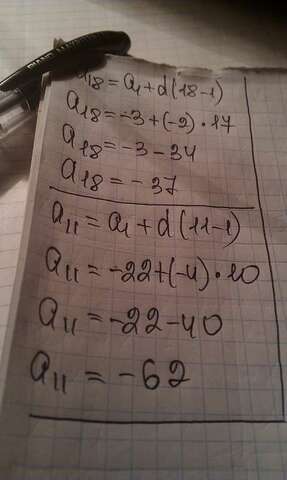 a₁₈ = a₁ + d(18-1)
a₁₈ = -3 + (-2) · 17
a₁₈ = -3 - 34
a₁₈ = -37
a₁₁ = a₁ + d(11-1)
a₁₁ = -22 + (-4) · 10
a₁₁ = -22 - 40
a₁₁ = -62